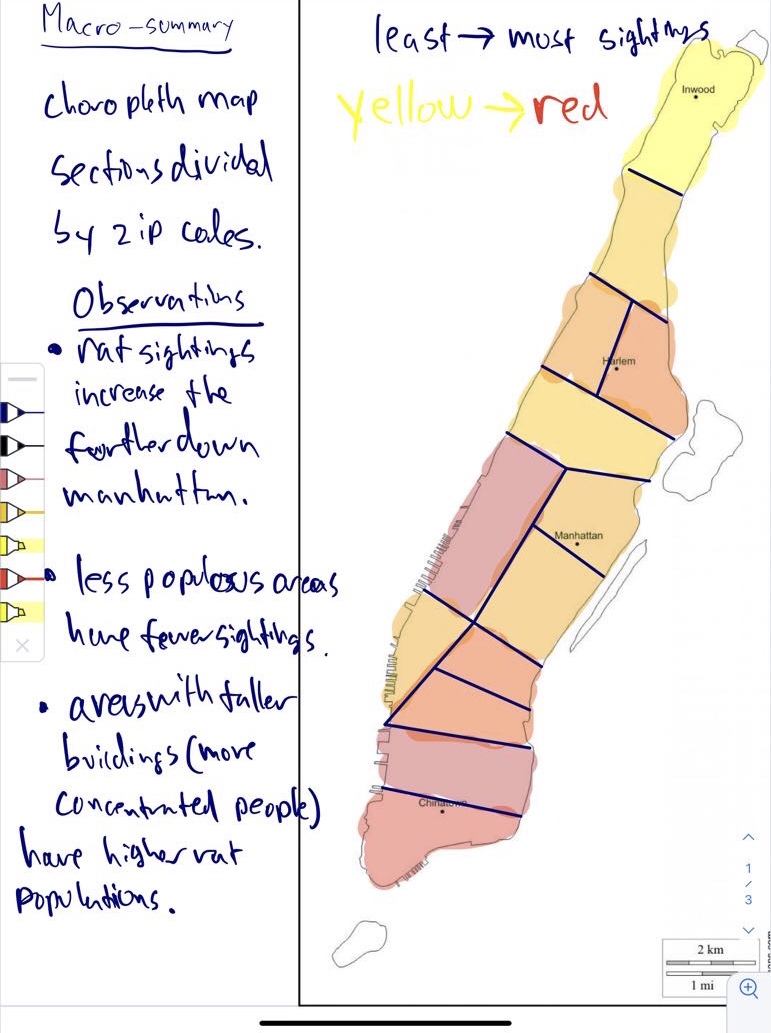 Macro-summary
choropleth map
sections divided
by zip codes.
Observations
• rat sightings
increase the
further down
manhattan.
• less populous areas
have fewer sightings.
• areas with taller
buildings (more
concentrated people)
have higher rat
populations.
least → most sightings
yellow → red
Inwood
Harlem
Manhattan
Chinatown
1
/
3
2 km
1 mi